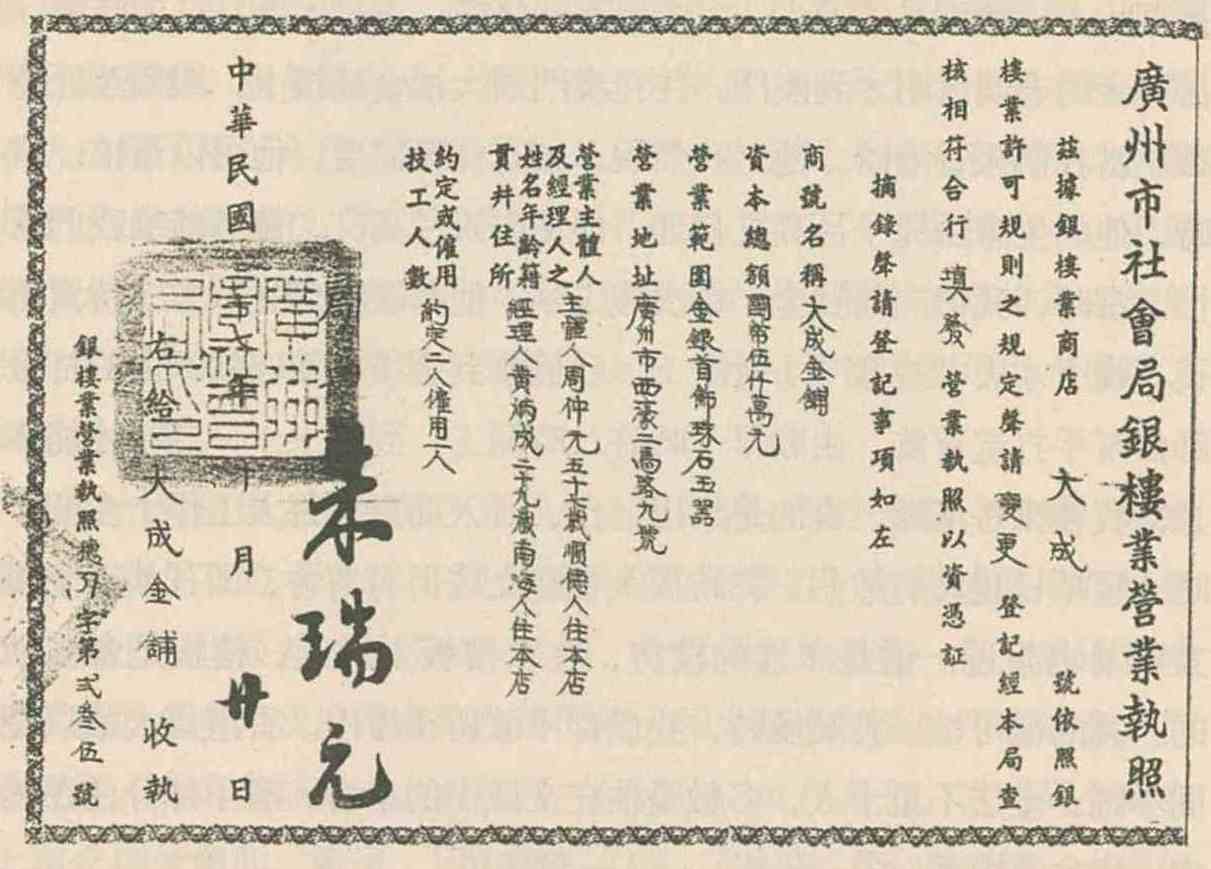 廣州市社會局銀樓業營業執照
茲據銀樓業商店 大成 號依照銀
樓業許可規則之規定聲請變更登記經本局查
核相符合行填發營業執照以資憑証
摘錄聲請登記事項如左
商號名稱大成金舖
資本總額國幣伍仟萬元
營業範圍金銀首飾珠石玉器
營業地址廣州市西濠二馬路九號
營業主體人
及經理人之
姓名年齡籍
貫并住所
主體人周仲元五十七歲順德人住本店
經理人黃炳成三十九歲南海人住本店
約定或僱用
技工人數
約定二人僱用一人
局長
朱瑞元
中華民國三十六年十月廿日
右給大成金舖收執
銀樓業營業執照穗刀字第弍叁伍號